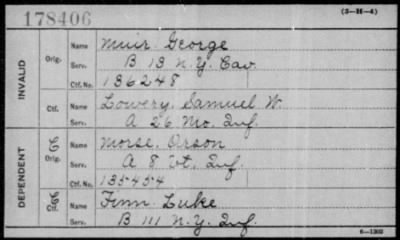 178406 (3-H-4)
INVALID
Orig. Name Muir George
Serv. B 13 N.Y. Cav.
Ctf. No. 136248
Ctf. Name Lowery, Samuel W.
Serv. A 26 Mo. Inf.
DEPENDENT
Orig. Name Morse, Orson
Serv. A 8 Vt. Inf.
Ctf. No. 135454
Ctf. Name Finn Luke
Serv. B 111 N.Y. Inf.
6-1303